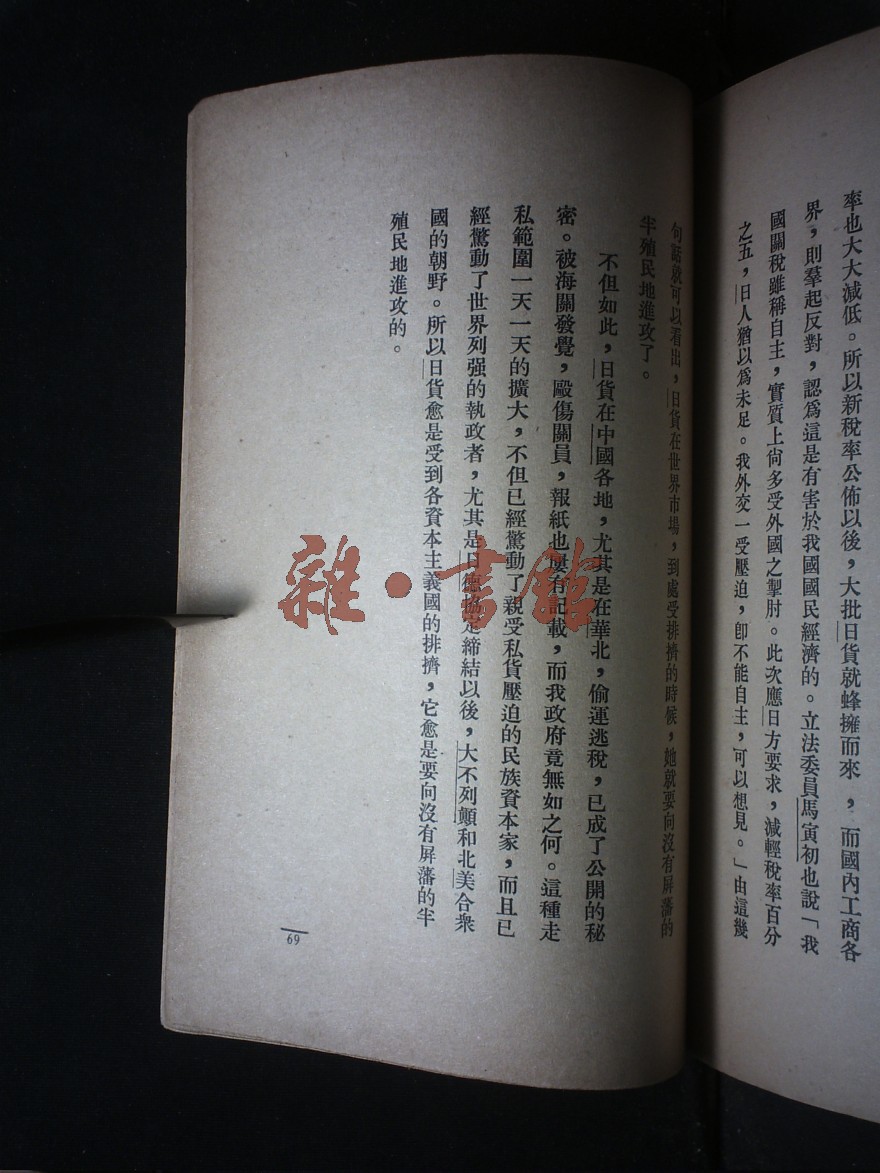 率也大大減低。所以新稅率公佈以後，大批日貨就蜂擁而來，而國內工商各
界，則羣起反對，認爲這是有害於我國國民經濟的。立法委員馬寅初也說「我
國關稅雖稱自主，實質上尙多受外國之掣肘。此次應日方要求，減輕稅率百分
之五，日人猶以爲未足。我外交一受壓迫，卽不能自主，可以想見。」由這幾
句話就可以看出，日貨在世界市場，到處受排擠的時候，她就要向沒有屛藩的
半殖民地進攻了。
不但如此，日貨在中國各地，尤其是在華北，偷運逃稅，已成了公開的秘
密。被海關發覺，毆傷關員，報紙也屢有記載，而我政府竟無如之何。這種走
私範圍一天一天的擴大，不但已經驚動了親受私貨壓迫的民族資本家，而且已
經驚動了世界列强的執政者，尤其是日德協定締結以後，大不列顚和北美合衆
國的朝野。所以日貨愈是受到各資本主義國的排擠，它愈是要向沒有屛藩的半
殖民地進攻的。
69
雜·書館